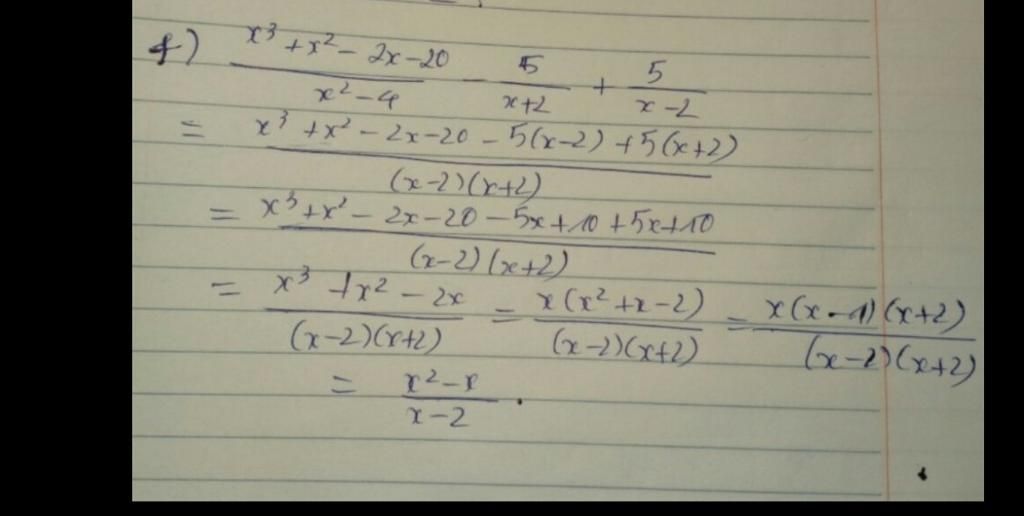 4) (x³ + x² - 2x - 20)/(x² - 4) - 5/(x+2) + 5/(x-2)
= (x³ + x² - 2x - 20 - 5(x-2) + 5(x+2))/((x-2)(x+2))
= (x³ + x² - 2x - 20 - 5x + 10 + 5x + 10)/((x-2)(x+2))
= (x³ + x² - 2x)/((x-2)(x+2)) = x(x² + x - 2)/((x-2)(x+2)) = x(x-1)(x+2)/((x-2)(x+2))
= (x² - x)/(x-2).